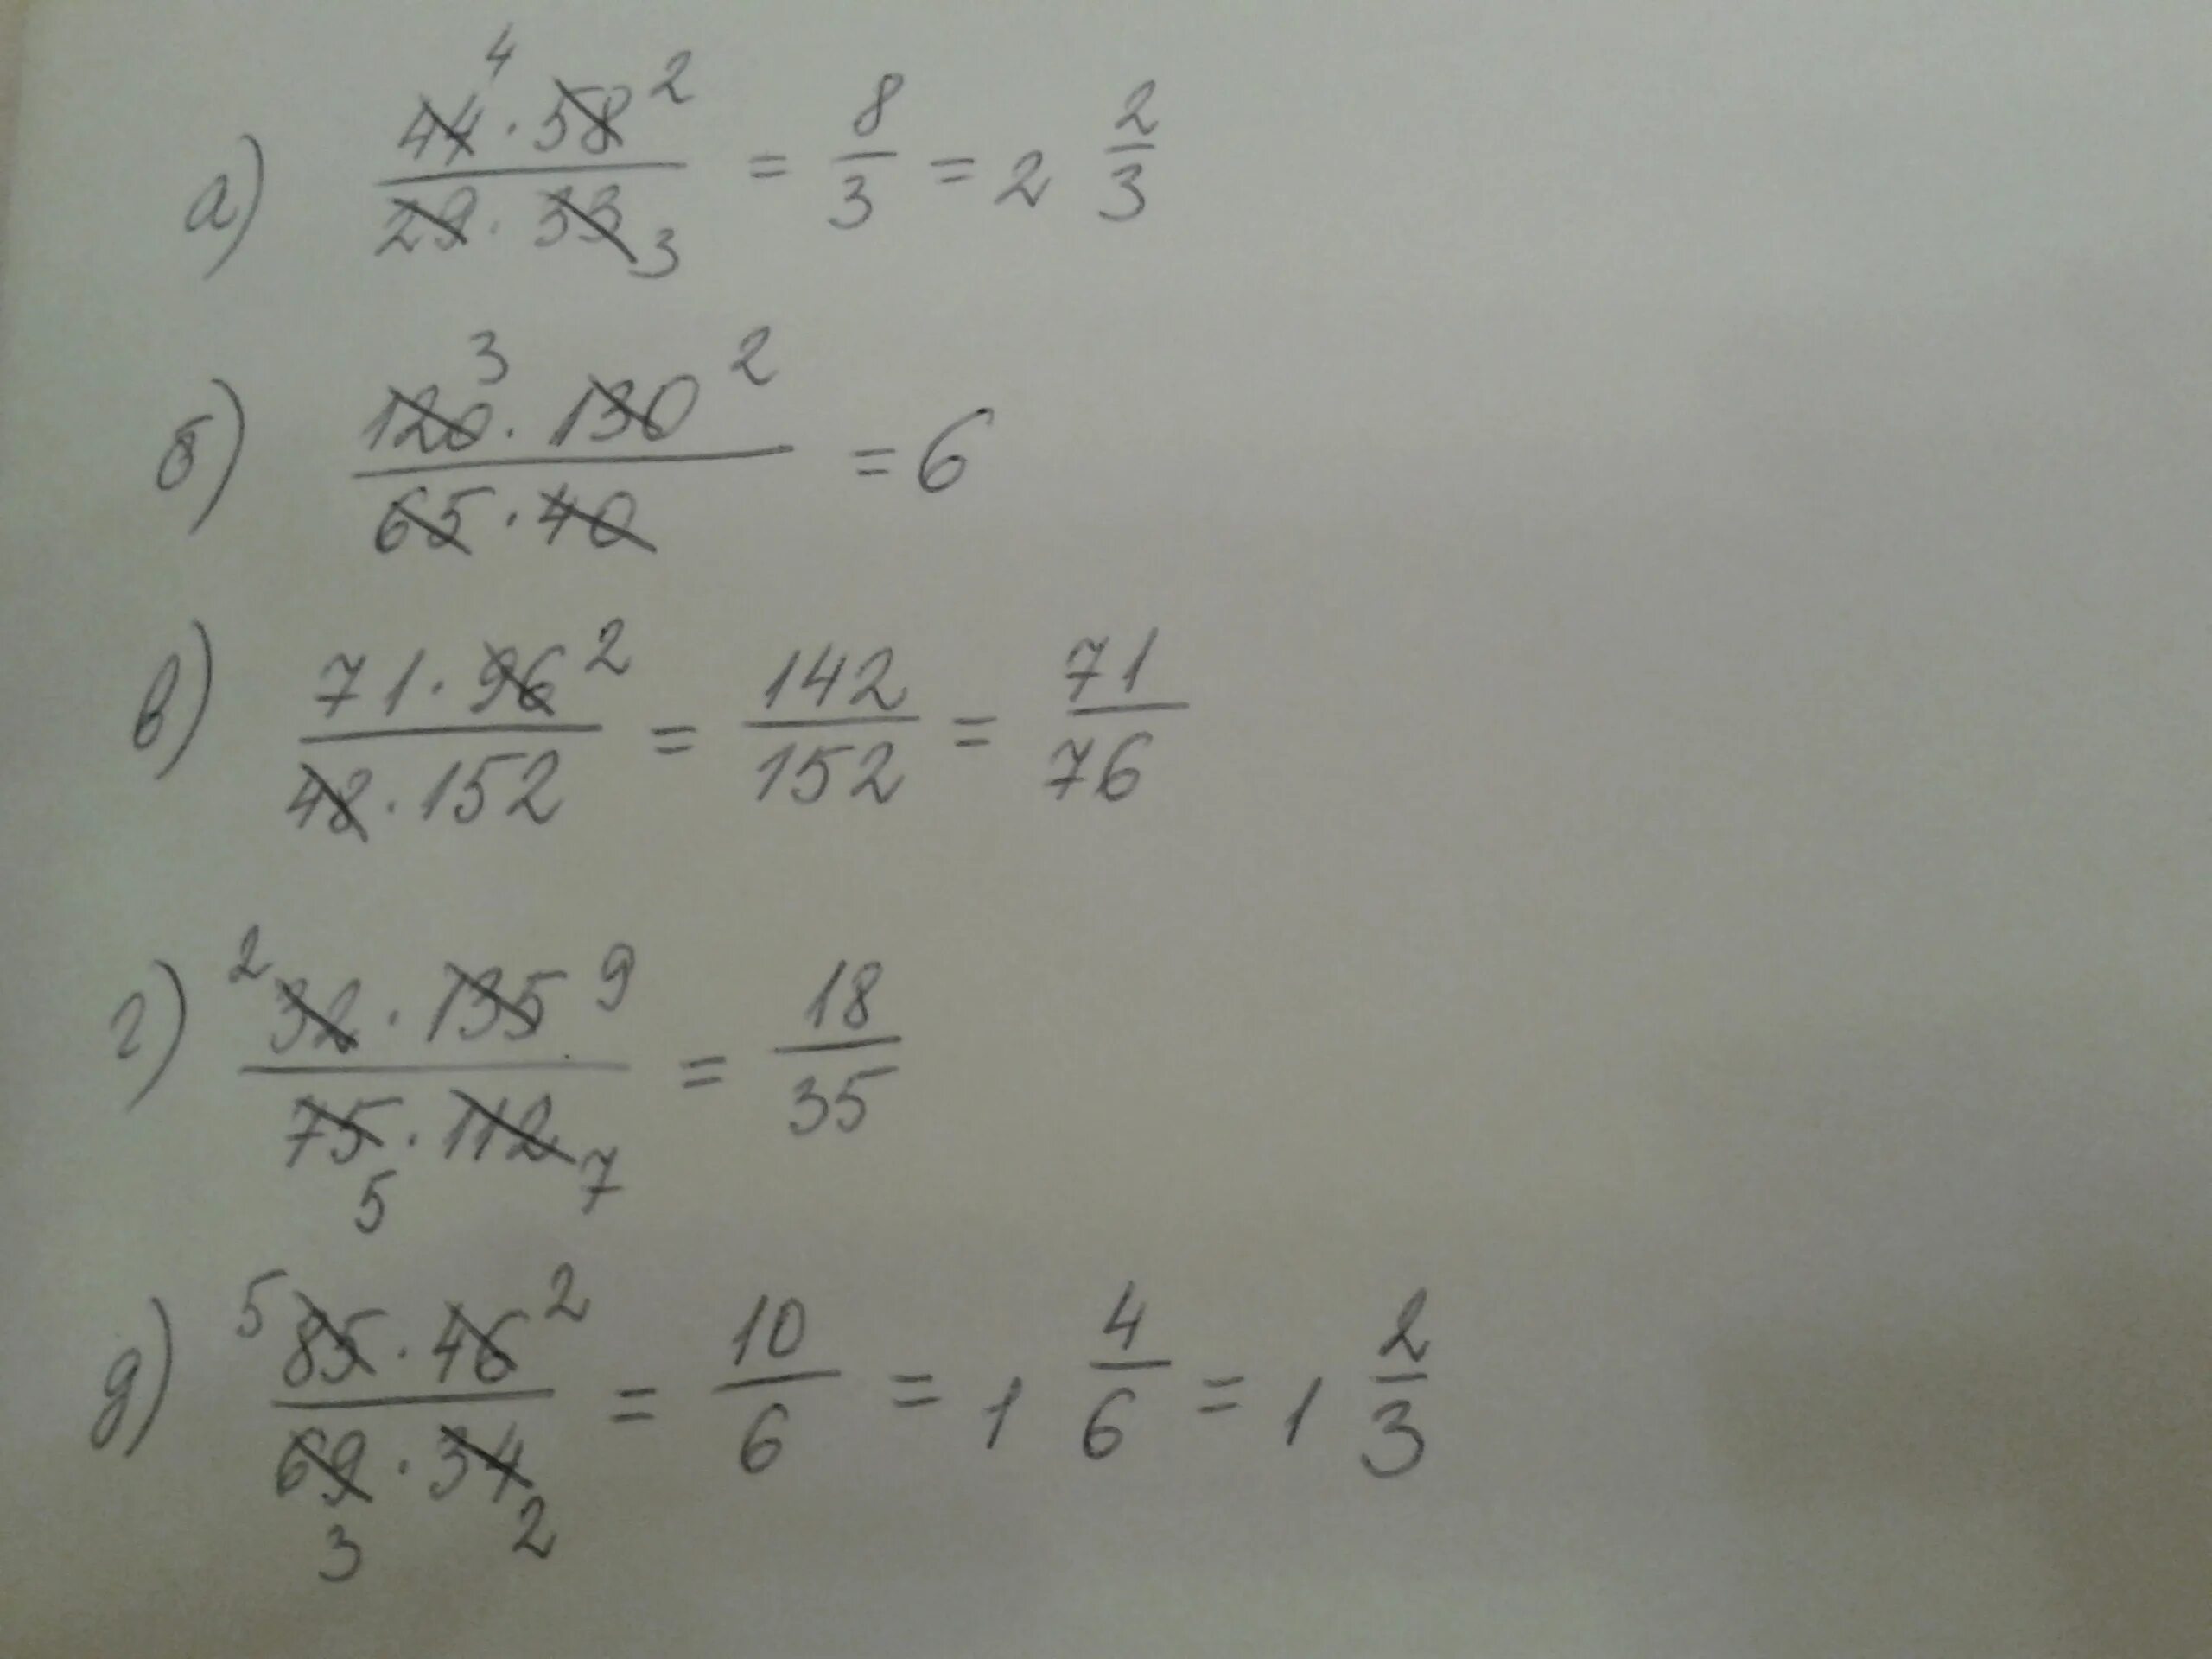 а) 44⁴ · 58² / 29 · 33₃ = 8/3 = 2 2/3
б) 120³ · 130² / 65 · 40 = 6
в) 71 · 96² / 48 · 152 = 142/152 = 71/76
г) ²32 · 135⁹ / 75₅ · 112₇ = 18/35
д) ⁵85 · 46² / 69₃ · 34₂ = 10/6 = 1 4/6 = 1 2/3